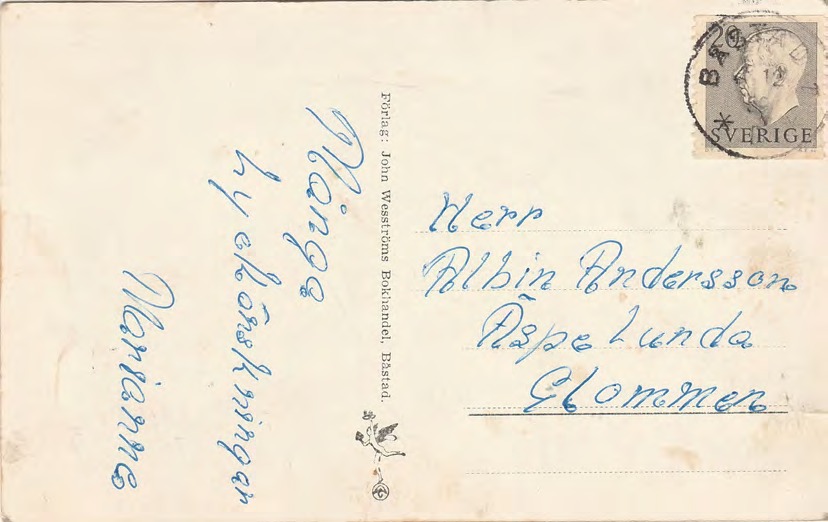 Många
lyckönskningar
Marianne
Förlag: John Wesströms Bokhandel, Båstad.
20
BÅSTAD
12
SVERIGE
Herr
Albin Andersson
Äspelunda
Glommen